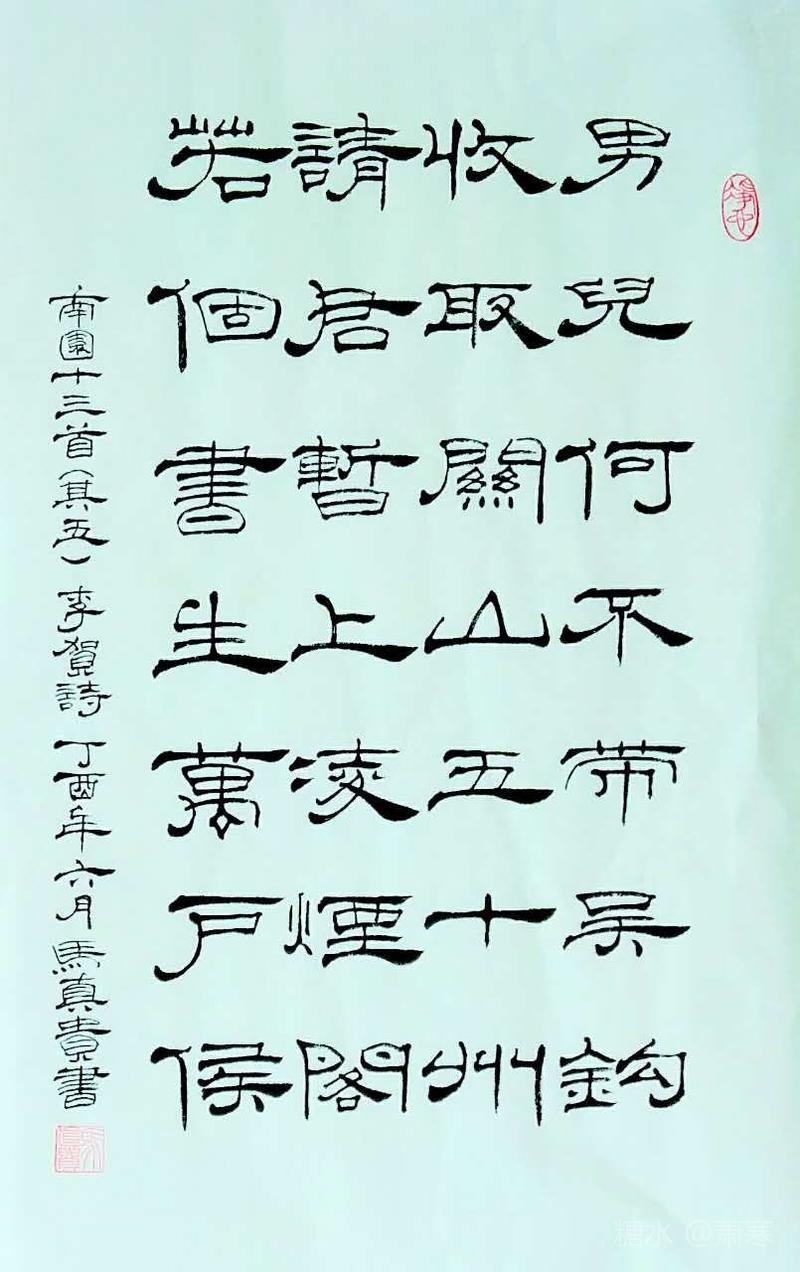 男兒何不带吴鈎
收取關山五十州
請君暫上凌煙閣
若個書生萬户侯
南園十三首(其五) 李賀詩 丁酉年六月 馬真貴書
糖水 @萧寒